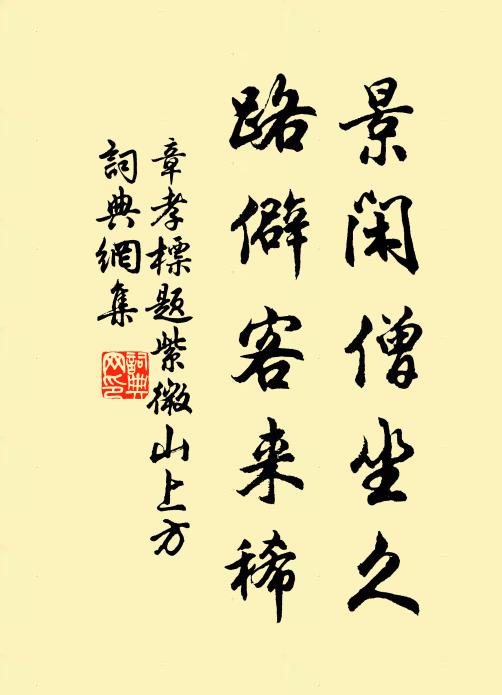 景閑僧坐久
路僻客来稀
章孝標題紫微山上方
詞典網集
詞典网印